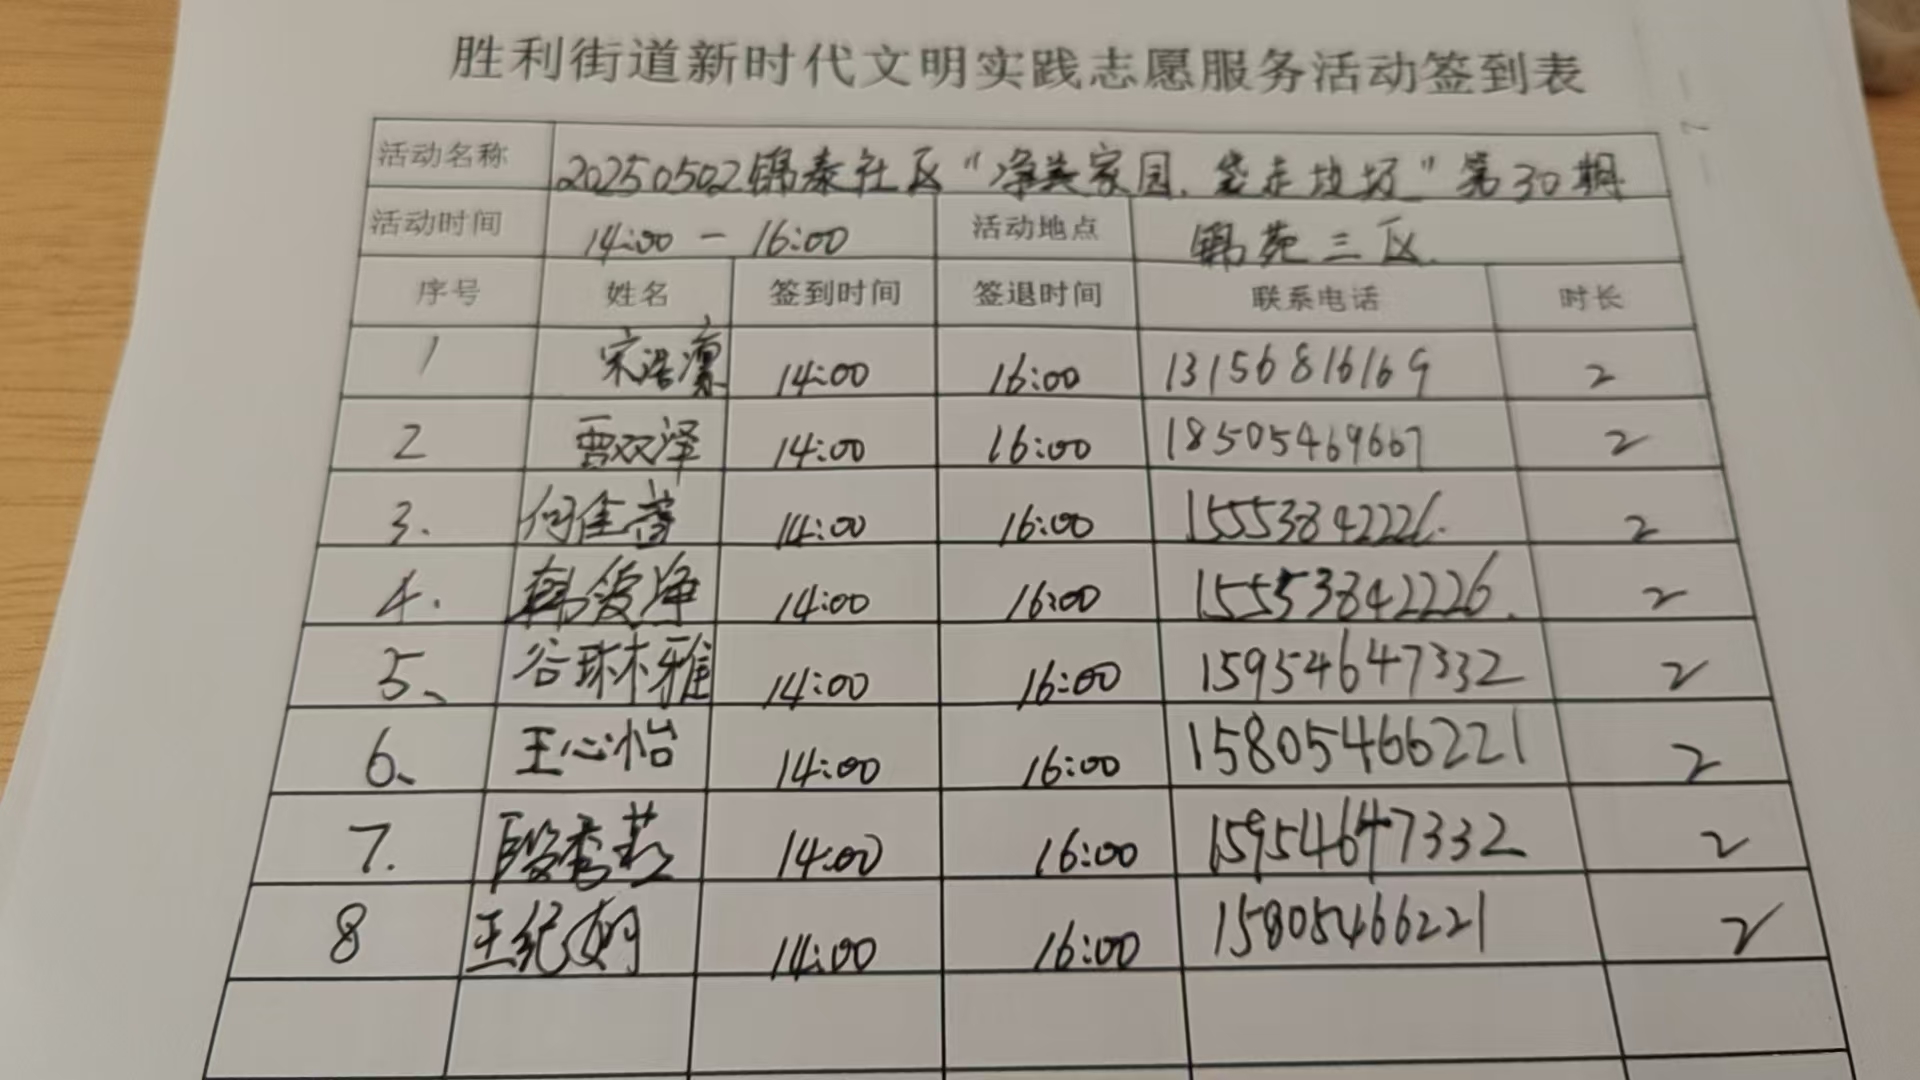 胜利街道新时代文明实践志愿服务活动签到表
活动名称 20250502锦泰社区“净美家园、袋走垃圾”第30期
活动时间 14:00 - 16:00 活动地点 锦苑三区
序号 姓名 签到时间 签退时间 联系电话 时长
1 宋浩凛 14:00 16:00 13156816169 2
2 贾双泽 14:00 16:00 18505469667 2
3. 何佳蓉 14:00 16:00 15553842226. 2
4. 韩爱净 14:00 16:00 15553842226. 2
5、 谷琳雅 14:00 16:00 15954647332 2
6、 王心怡 14:00 16:00 15805466221 2
7. 段秀燕 14:00 16:00 15954647332 2
8 王纪娴 14:00 16:00 15805466221 2